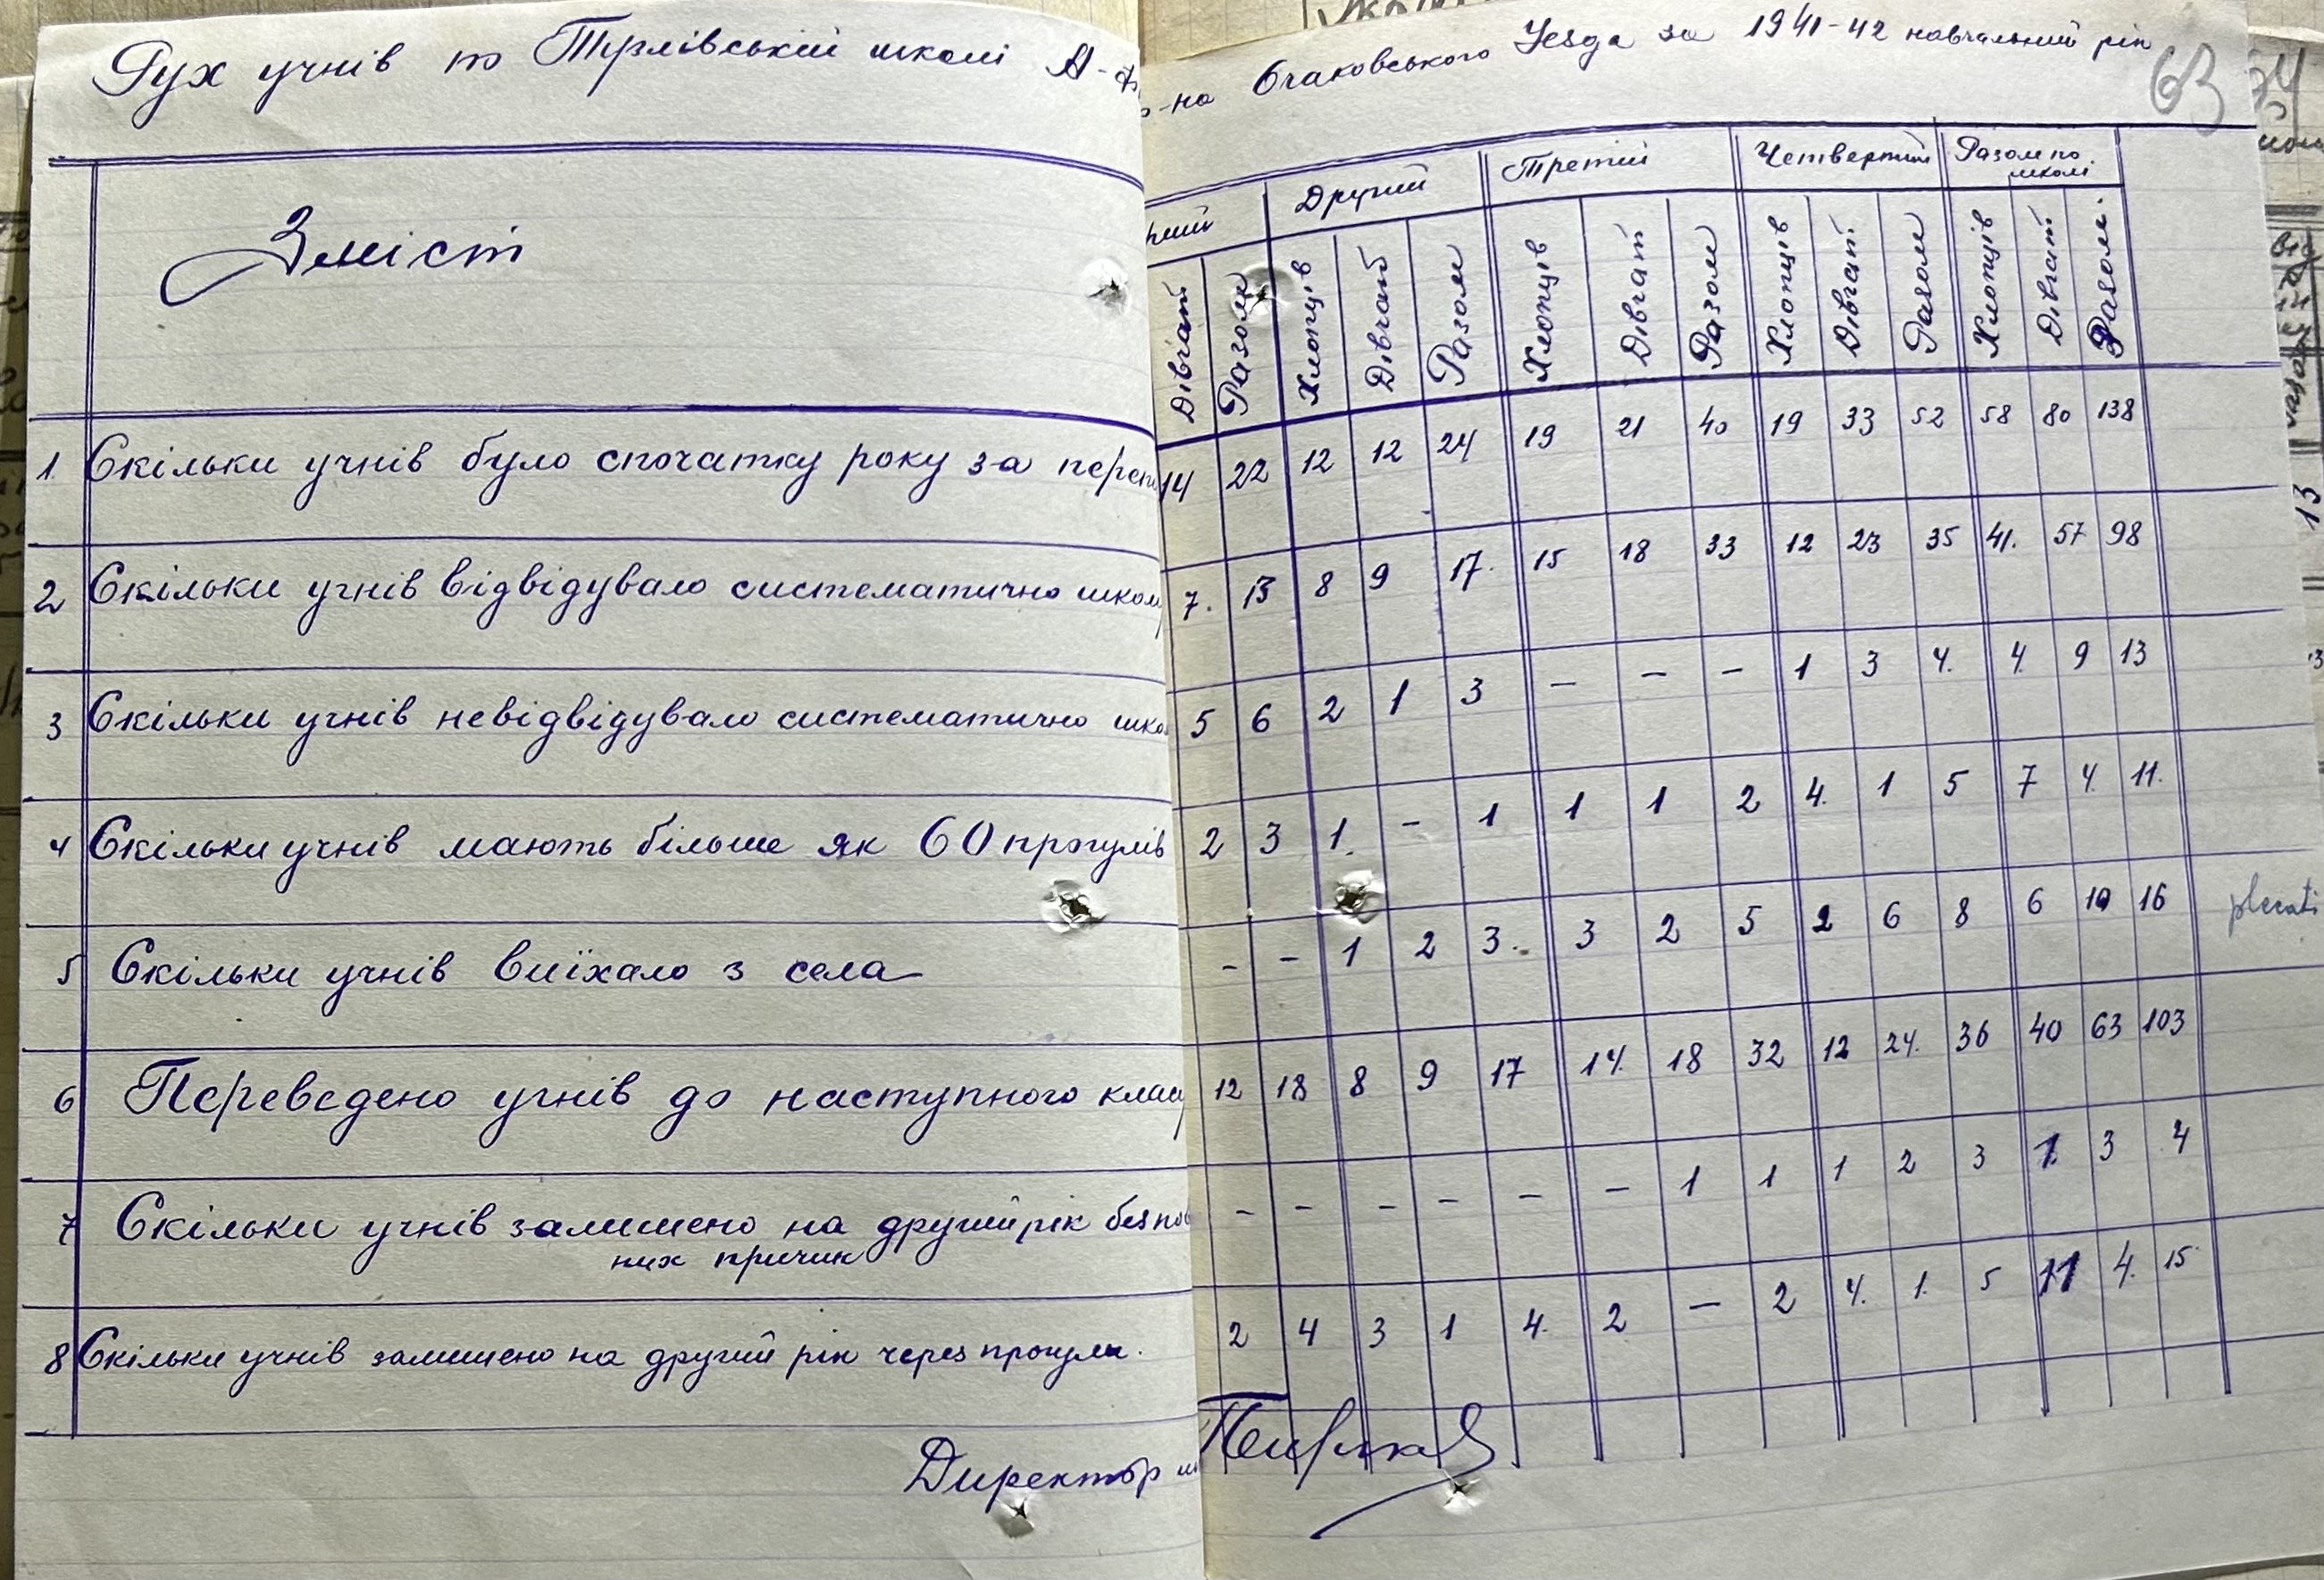 Рух учнів по Тузлівській школі А-
р-на Очаковського Уезда за 1941-42 навчальний рік
63
Зміст
рший Другий Третій Четвертий Разом по школі
Дівчат Разом Хлопців Дівчат Разом Хлопців Дівчат Разом Хлопців Дівчат. Разом Хлопців Дівчат Разом.
1. Скільки учнів було спочатку року за переп 14 22 12 12 24 19 21 40 19 33 52 58 80 138
2 Скільки учнів відвідувало систематично школу 7. 13 8 9 17. 15 18 33 12 23 35 41. 57 98
3 Скільки учнів невідвідувало систематично шко 5 6 2 1 3 — — — 1 3 4. 4. 9 13
4 Скільки учнів мають більше як 60 прогулів 2 3 1. – 1 1 1 2 4. 1 5 7 4. 11.
5 Скільки учнів виїхало з села – – 1 2 3. 3 2 5 2 6 8 6 10 16 plecati
6 Переведено учнів до наступного класу 12 18 8 9 17 14. 18 32 12 24. 36 40 63 103
7 Скільки учнів залишено на другий рік без пов – – – – – – 1 1 1 2 3 1 3 4
них причин
8 Скільки учнів залишено на другий рік через прогули. 2 4 3 1 4. 2 — 2 4. 1. 5 11 4. 15
Директор ш